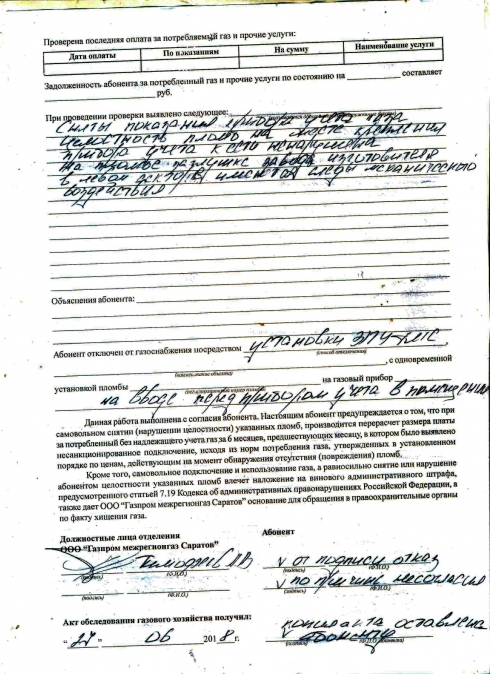 Проверена последняя оплата за потребляемый газ и прочие услуги:
Дата оплаты По показаниям На сумму Наименование услуги
Задолженность абонента за потребленный газ и прочие услуги по состоянию на составляет
руб.
При проведении проверки выявлено следующее:
Сняты показания прибора учета газа
целостность пломб на месте крепления
прибора учета к сети ненарушена
на пломбе завода изготовителя
в левом имеются следы механического
воздействия
Объяснения абонента:
Абонент отключен от газоснабжения посредством установки ЗПУ
(способ отключения)
, с одновременной
(наименование объекта)
установкой пломбы на газовый прибор
на вводе перед прибором учета в помещение
Данная работа выполнена с согласия абонента. Настоящим абонент предупреждается о том, что при
самовольном снятии (нарушении целостности) указанных пломб, производится перерасчет размера платы
за потребленный без надлежащего учета газ за 6 месяцев, предшествующих месяцу, в котором было выявлено
несанкционированное подключение, исходя из норм потребления газа, утвержденных в установленном
порядке по ценам, действующим на момент обнаружения отсутствия (повреждения) пломб.
Кроме того, самовольное подключение и использование газа, а равносильно снятие или нарушение
абонентом целостности указанных пломб влечет наложение на виновного административного штрафа,
предусмотренного статьей 7.19 Кодекса об административных правонарушениях Российской Федерации, а
также дает ООО “Газпром межрегионгаз Саратов” основание для обращения в правоохранительные органы
по факту хищения газа.
Должностные лица отделения Абонент
ООО “Газпром межрегионгаз Саратов”
от подписи отказ
(подпись) (Ф.И.О.) (подпись) (Ф.И.О.)
по причине несогласия
(подпись) (Ф.И.О.) (подпись) (Ф.И.О.)
Акт обследования газового хозяйства получил: копия акта оставлена
“ 27 ” 06 2018 г. абоненту
(подпись) (Ф.И.О. абонента)